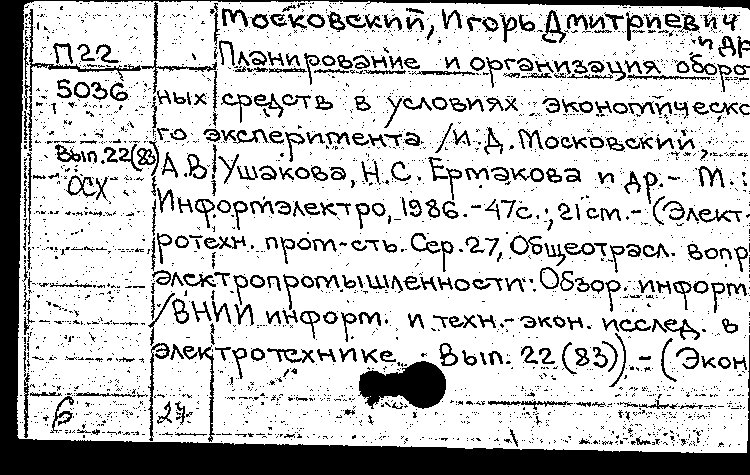 Московский, Игорь Дмитриевич
и др
П22
Планирование и организация оборот
5036
ных средств в условиях экономическо
го эксперимента /И.Д. Московский,
Вып.22(83)
А.В. Ушакова, Н.С. Ермакова и др.- М.:
ОСХ
Информэлектро, 1986.-47с.; 21см.- (Элект.
ротехн. пром-сть. Сер.27, Общеотрасл. вопр
электропромышленности: Обзор. информ
/ВНИИ информ. и техн.-экон. исслед. в
электротехнике. Вып. 22 (83)). - (Экон
б 27